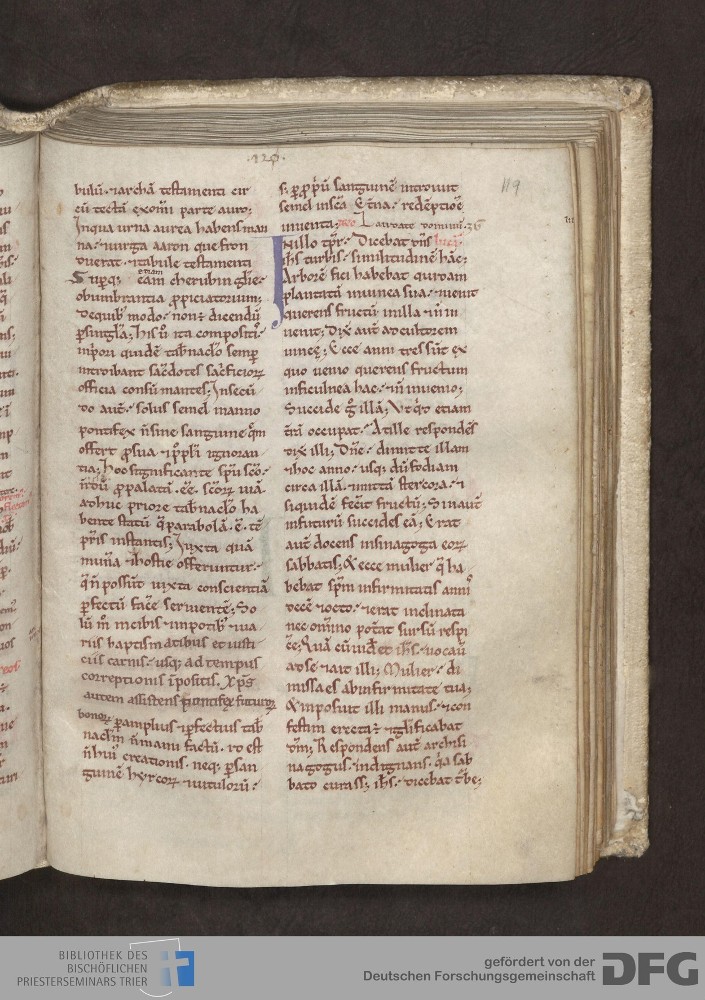 ·229·
119
bulũ· ⁊ archã testamenti cir
cũ tectã ex om̃i parte auro;
Inqua urna aurea habens man
na· ⁊ uirga aaron que fron
duerat· ⁊ tabule testamenti
Suꝑq; etiam eam cherubin gl̃ie·
obumbrantia ꝓpiciatorium;
de quib; modo· non ẽ dicendũ
ꝑ singl̃a; His ũ ita compositis
in priori quidẽ tab̃nacl̃o semꝑ
introibant sacẽdotes sac̃ficiorꝝ
officia consũmantes; In secũ
do aut̃· solus semel in anno
pontifex ñ sine sanguine q̃m
offert ꝓ sua ⁊ pp̃l̃i ignoran
tia; Hoc significante sp̃u sc̃o·
nõdũ ꝓpalatã· eẽ· sc̃orꝝ uiã
adhuc priore tab̃nacl̃o ha
bente statũ q̃ parabola· ẽ· tẽ
pr̃is instantis; Iuxta quã
mun̄a ⁊ hostie offeruntur·
q̃ ñ possũt iuxta conscientiã
ꝑfectũ fac̃e seruientẽ; So
lũ m̃ in cibis ⁊ in potib; ⁊ ua
riis baptismatibus et iusti
ciis carnis· usq; ad tempus
correptionis ĩpositis. Xp̃s
autem assistens pontifex futurorꝝ
bonorꝝ ꝑ amplius ⁊ ꝑfectius tab̃
nacl̃m ñ manu factũ· id est
ñ hui᷒ creationis· neq; ꝑ san
guinẽ hyrcorꝝ ⁊ uitulorũ·
s; ꝑ ꝓpriũ sanguinẽ introiuit
semel in sc̃a Et̃na· redẽptiõe
inuenta; Laudate dominũ.
In illo tp̃r· Dicebat dñs
ih̃s turbis· similitudinẽ hãc;
Arborẽ fici habebat quidam
plantatã in uinea sua· ⁊ uenit
querens fructũ in illa ⁊ ñ in
uenit; Dix̃ aut̃ ad cultorem
uineẽ; Ecce anni tres sũt ex
quo uenio querens fructum
in ficulnea hac· ⁊ ñ inuenio;
Succide g̃ illã; Vt qd̃ etiam
t̃rã occupat· At ille respondẽs
dix̃ illi; Dñe· dimitte illam
⁊ hoc anno· usq; dũ fodiam
circa illã· ⁊ mittã stercora· ⁊
siquidẽ fec̃it fructũ; Sin aut̃
in futurũ succides eã; Erat
aut̃ docens in sinagoga eorꝝ
sabbatis; & ecce mulier q̃ ha
bebat sp̃m infirmitatis annis
decẽ ⁊ octo· ⁊ erat inclinata
nec om̃ino pot̃at sursũ respi
c̃e; Quã cũ uidet ih̃s· uocaũ
ad se ⁊ ait illi; Mulier· di
missa es ab infirmitate tua;
& imposuit illi manus· ⁊ con
festim erecta ẽ ⁊ gl̃ificabat
dm̃; Respondens aut̃ archisi
nagogus· indignans· q̃a sab
bato curass; ih̃s· dicebat t̃be;
BIBLIOTHEK DES
BISCHÖFLICHEN
PRIESTERSEMINARS TRIER
gefördert von der
Deutschen Forschungsgemeinschaft
DFG